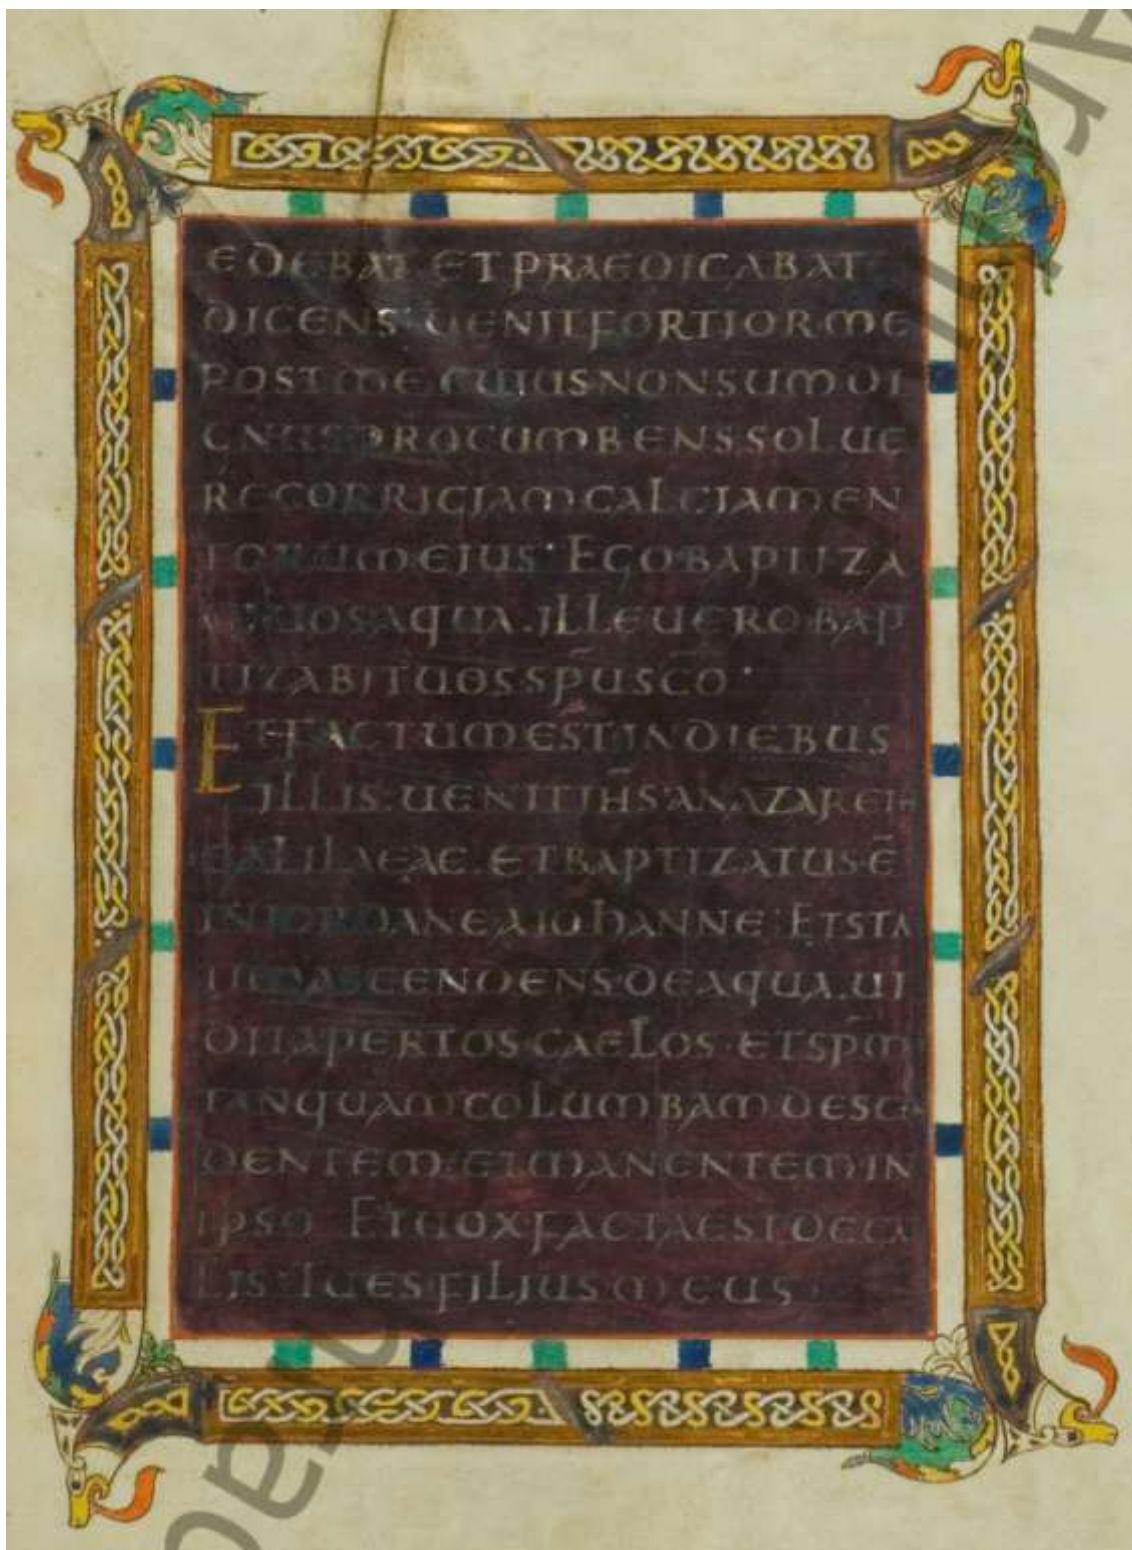 EDEBAT ET PRAEDICABAT
DICENS· UENIT FORTIOR ME
POST ME CUIUS NON SUM DI
GNUS PROCUMBENS SOLUE
RE CORRIGIAM CALCIAMEN
TORUM EIUS· EGO BAPTIZA
UI UOS AQUA. ILLE UERO BAP
TIZABIT UOS SPU SCO·
ET FACTUM EST IN DIEBUS
ILLIS· UENIT IHS A NAZARETH
GALILAEAE. ET BAPTIZATUS Ē
IN IORDANE A IOHANNE· ET STA
TIM ASCENDENS DE AQUA. UI
DIT APERTOS CAELOS ET SPM
TANQUAM COLUMBAM DESCEN
DENTEM· ET MANENTEM IN
IPSO ET UOX FACTA EST DE CAE
LIS· TU ES FILIUS MEUS